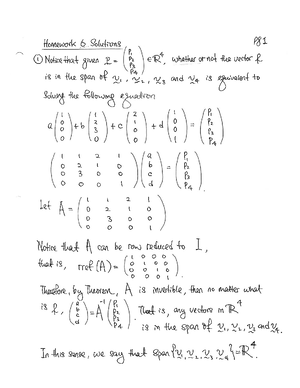 Homework 6 Solutions Pg 1
① Notice that given p = (P₁ P₂ P₃ P₄) ∈ ℝ⁴, whether or not the vector p
is in the span of v₁, v₂, v₃ and v₄ is equivalent to
solving the following equation
a(1 0 0 0) + b(1 2 3 0) + c(2 1 0 0) + d(1 0 0 1) = (P₁ P₂ P₃ P₄)
(1 1 2 1
0 2 1 0
0 3 0 0
0 0 0 1) (a b c d) = (P₁ P₂ P₃ P₄).
Let A = (1 1 2 1
0 2 1 0
0 3 0 0
0 0 0 1)
Notice that A can be row reduced to I,
that is, rref(A) = (1 0 0 0
0 1 0 0
0 0 1 0
0 0 0 1).
Therefore, by Theorem, A is invertible, then no matter what
is p, (a b c d) = A⁻¹(P₁ P₂ P₃ P₄). That is, any vectors in ℝ⁴
is in the span of v₁, v₂, v₃ and v₄.
In this sense, we say that span{v₁, v₂, v₃, v₄} = ℝ⁴.